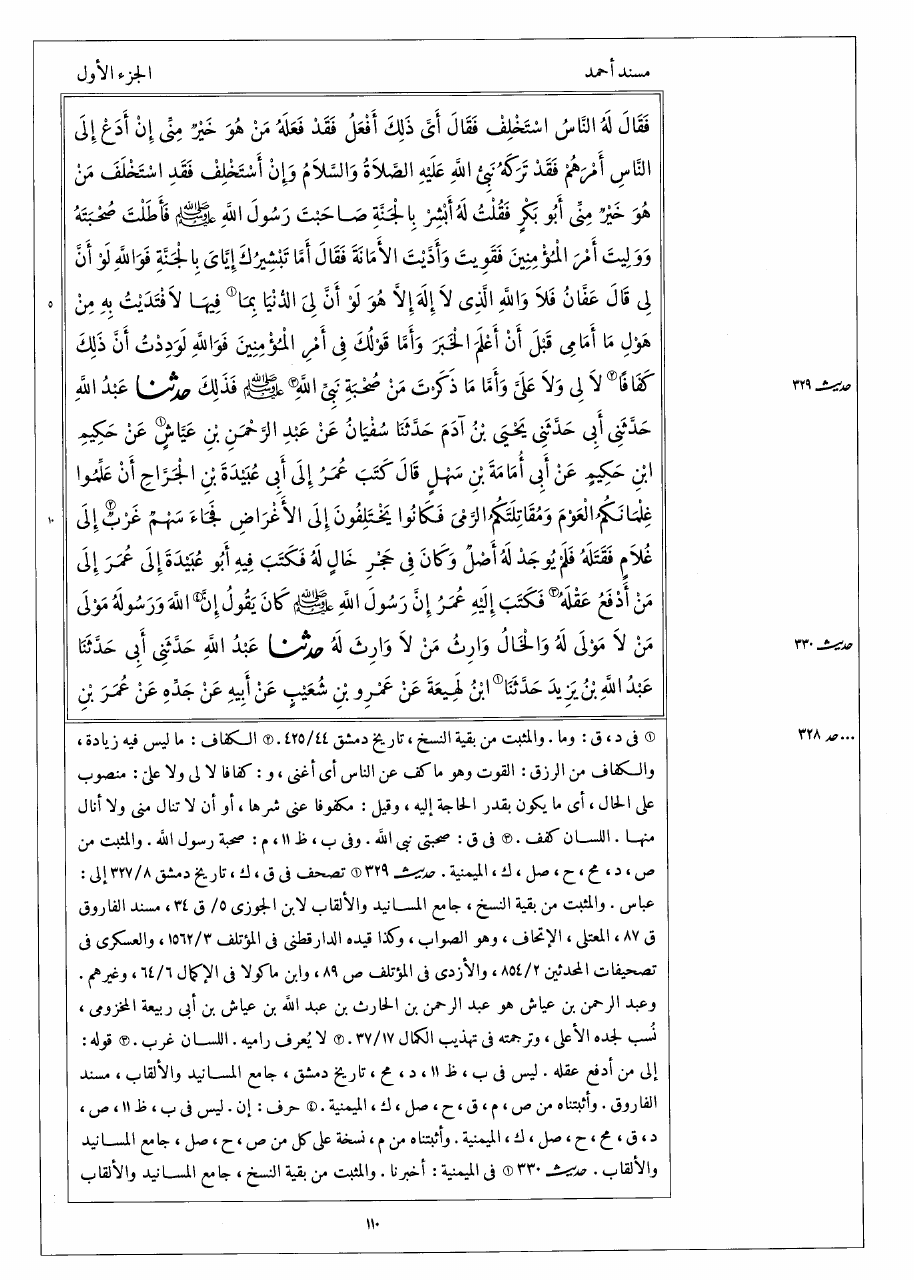 مسند أحمد
الجزء الأول
فَقَالَ لَهُ النَّاسُ اسْتَخْلِفْ فَقَالَ أَىَّ ذَلِكَ أَفْعَلُ فَقَدْ فَعَلَهُ مَنْ هُوَ خَيْرٌ مِنِّى إِنْ أَدَعْ إِلَى
النَّاسِ أَمْرَهُمْ فَقَدْ تَرَكَهُ نَبِىُّ اللَّهِ عَلَيْهِ الصَّلاَةُ وَالسَّلاَمُ وَإِنْ أَسْتَخْلِفْ فَقَدِ اسْتَخْلَفَ مَنْ
هُوَ خَيْرٌ مِنِّى أَبُو بَكْرٍ فَقُلْتُ لَهُ أَبْشِرْ بِالْجَنَّةِ صَاحَبْتَ رَسُولَ اللَّهِ ﷺ فَأَطَلْتَ صُحْبَتَهُ
وَوَلِيتَ أَمْرَ الْمُؤْمِنِينَ فَقَوِيتَ وَأَدَّيْتَ الأَمَانَةَ فَقَالَ أَمَّا تَبْشِيرُكَ إِيَّاىَ بِالْجَنَّةِ فَوَاللَّهِ لَوْ أَنَّ
لِى قَالَ عَفَّانُ فَلاَ وَاللَّهِ الَّذِى لاَ إِلَهَ إِلاَّ هُوَ لَوْ أَنَّ لِىَ الدُّنْيَا بِمَا① فِيهَا لاَفْتَدَيْتُ بِهِ مِنْ
٥
هَوْلِ مَا أَمَامِى قَبْلَ أَنْ أَعْلَمَ الْخَبَرَ وَأَمَّا قَوْلُكَ فِى أَمْرِ الْمُؤْمِنِينَ فَوَاللَّهِ لَوَدِدْتُ أَنَّ ذَلِكَ
كَفَافًا② لاَ لِى وَلاَ عَلَىَّ وَأَمَّا مَا ذَكَرْتَ مِنْ صُحْبَةِ نَبِىِّ اللَّهِ③ ﷺ فَذَلِكَ حدثنا عَبْدُ اللَّهِ
حديث ٣٢٩
حَدَّثَنِى أَبِى حَدَّثَنِى يَحْيَى بْنُ آدَمَ حَدَّثَنَا سُفْيَانُ عَنْ عَبْدِ الرَّحْمَنِ بْنِ عَيَّاشٍ① عَنْ حَكِيمِ
ابْنِ حَكِيمٍ عَنْ أَبِى أُمَامَةَ بْنِ سَهْلٍ قَالَ كَتَبَ عُمَرُ إِلَى أَبِى عُبَيْدَةَ بْنِ الْجَرَّاحِ أَنْ عَلِّمُوا
غِلْمَانَكُمُ الْعَوْمَ وَمُقَاتِلَتَكُمُ الرَّمْىَ فَكَانُوا يَخْتَلِفُونَ إِلَى الأَغْرَاضِ فَجَاءَ سَهْمٌ غَرْبٌ② إِلَى
١٠
غُلاَمٍ فَقَتَلَهُ فَلَمْ يُوجَدْ لَهُ أَصْلٌ وَكَانَ فِى حَجْرِ خَالٍ لَهُ فَكَتَبَ فِيهِ أَبُو عُبَيْدَةَ إِلَى عُمَرَ إِلَى
مَنْ أَدْفَعُ عَقْلَهُ③ فَكَتَبَ إِلَيْهِ عُمَرُ إِنَّ رَسُولَ اللَّهِ ﷺ كَانَ يَقُولُ إِنَّ④ اللَّهَ وَرَسُولَهُ مَوْلَى
مَنْ لاَ مَوْلَى لَهُ وَالْخَالُ وَارِثُ مَنْ لاَ وَارِثَ لَهُ حدثنا عَبْدُ اللَّهِ حَدَّثَنِى أَبِى حَدَّثَنَا
حديث ٣٣٠
عَبْدُ اللَّهِ بْنُ يَزِيدَ حَدَّثَنَا① ابْنُ لَهِيعَةَ عَنْ عَمْرِو بْنِ شُعَيْبٍ عَنْ أَبِيهِ عَنْ جَدِّهِ عَنْ عُمَرَ بْنِ
... حد ٣٢٨
① فى د ، ق : وما . والمثبت من بقية النسخ ، تاريخ دمشق ٤٢٥/٤٤. ② الكفاف : ما ليس فيه زيادة ،
والكفاف من الرزق : القوت وهو ما كف عن الناس أى أغنى ، و : كفافا لا لى ولا علىّ : منصوب
على الحال ، أى ما يكون بقدر الحاجة إليه ، وقيل : مكفوفا عنى شرها ، أو أن لا تنال منى ولا أنال
منها . اللسان كفف . ③ فى ق : صحبتى نبى الله . وفى ب ، ظ ١١ ، م : صحبة رسول الله . والمثبت من
ص ، د ، مح ، ح ، صل ، ك ، الميمنية . حديث ٣٢٩ ① تصحف فى ق ، ك ، تاريخ دمشق ٣٢٧/٨ إلى :
عباس . والمثبت من بقية النسخ ، جامع المسانيد والألقاب لابن الجوزى ٥/ ق ٣٤ ، مسند الفاروق
ق ٨٧ ، المعتلى ، الإتحاف ، وهو الصواب ، وكذا قيده الدارقطنى فى المؤتلف ١٥٦٢/٣ ، والعسكرى فى
تصحيفات المحدثين ٨٥٤/٢ ، والأزدى فى المؤتلف ص ٨٩ ، وابن ماكولا فى الإكمال ٦٤/٦ ، وغيرهم .
وعبد الرحمن بن عياش هو عبد الرحمن بن الحارث بن عبد الله بن عياش بن أبى ربيعة المخزومى ،
نُسب لجده الأعلى ، وترجمته فى تهذيب الكمال ٣٧/١٧. ② لا يُعرف راميه . اللسان غرب . ③ قوله :
إلى من أدفع عقله . ليس فى ب ، ظ ١١ ، د ، مح ، تاريخ دمشق ، جامع المسانيد والألقاب ، مسند
الفاروق . وأثبتناه من ص ، م ، ق ، ح ، صل ، ك ، الميمنية . ④ حرف : إن . ليس فى ب ، ظ ١١ ، ص ،
د ، ق ، مح ، ح ، صل ، ك ، الميمنية . وأثبتناه من م ، نسخة على كل من ص ، ح ، صل ، جامع المسانيد
والألقاب . حديث ٣٣٠ ① فى الميمنية : أخبرنا . والمثبت من بقية النسخ ، جامع المسانيد والألقاب
١١٠